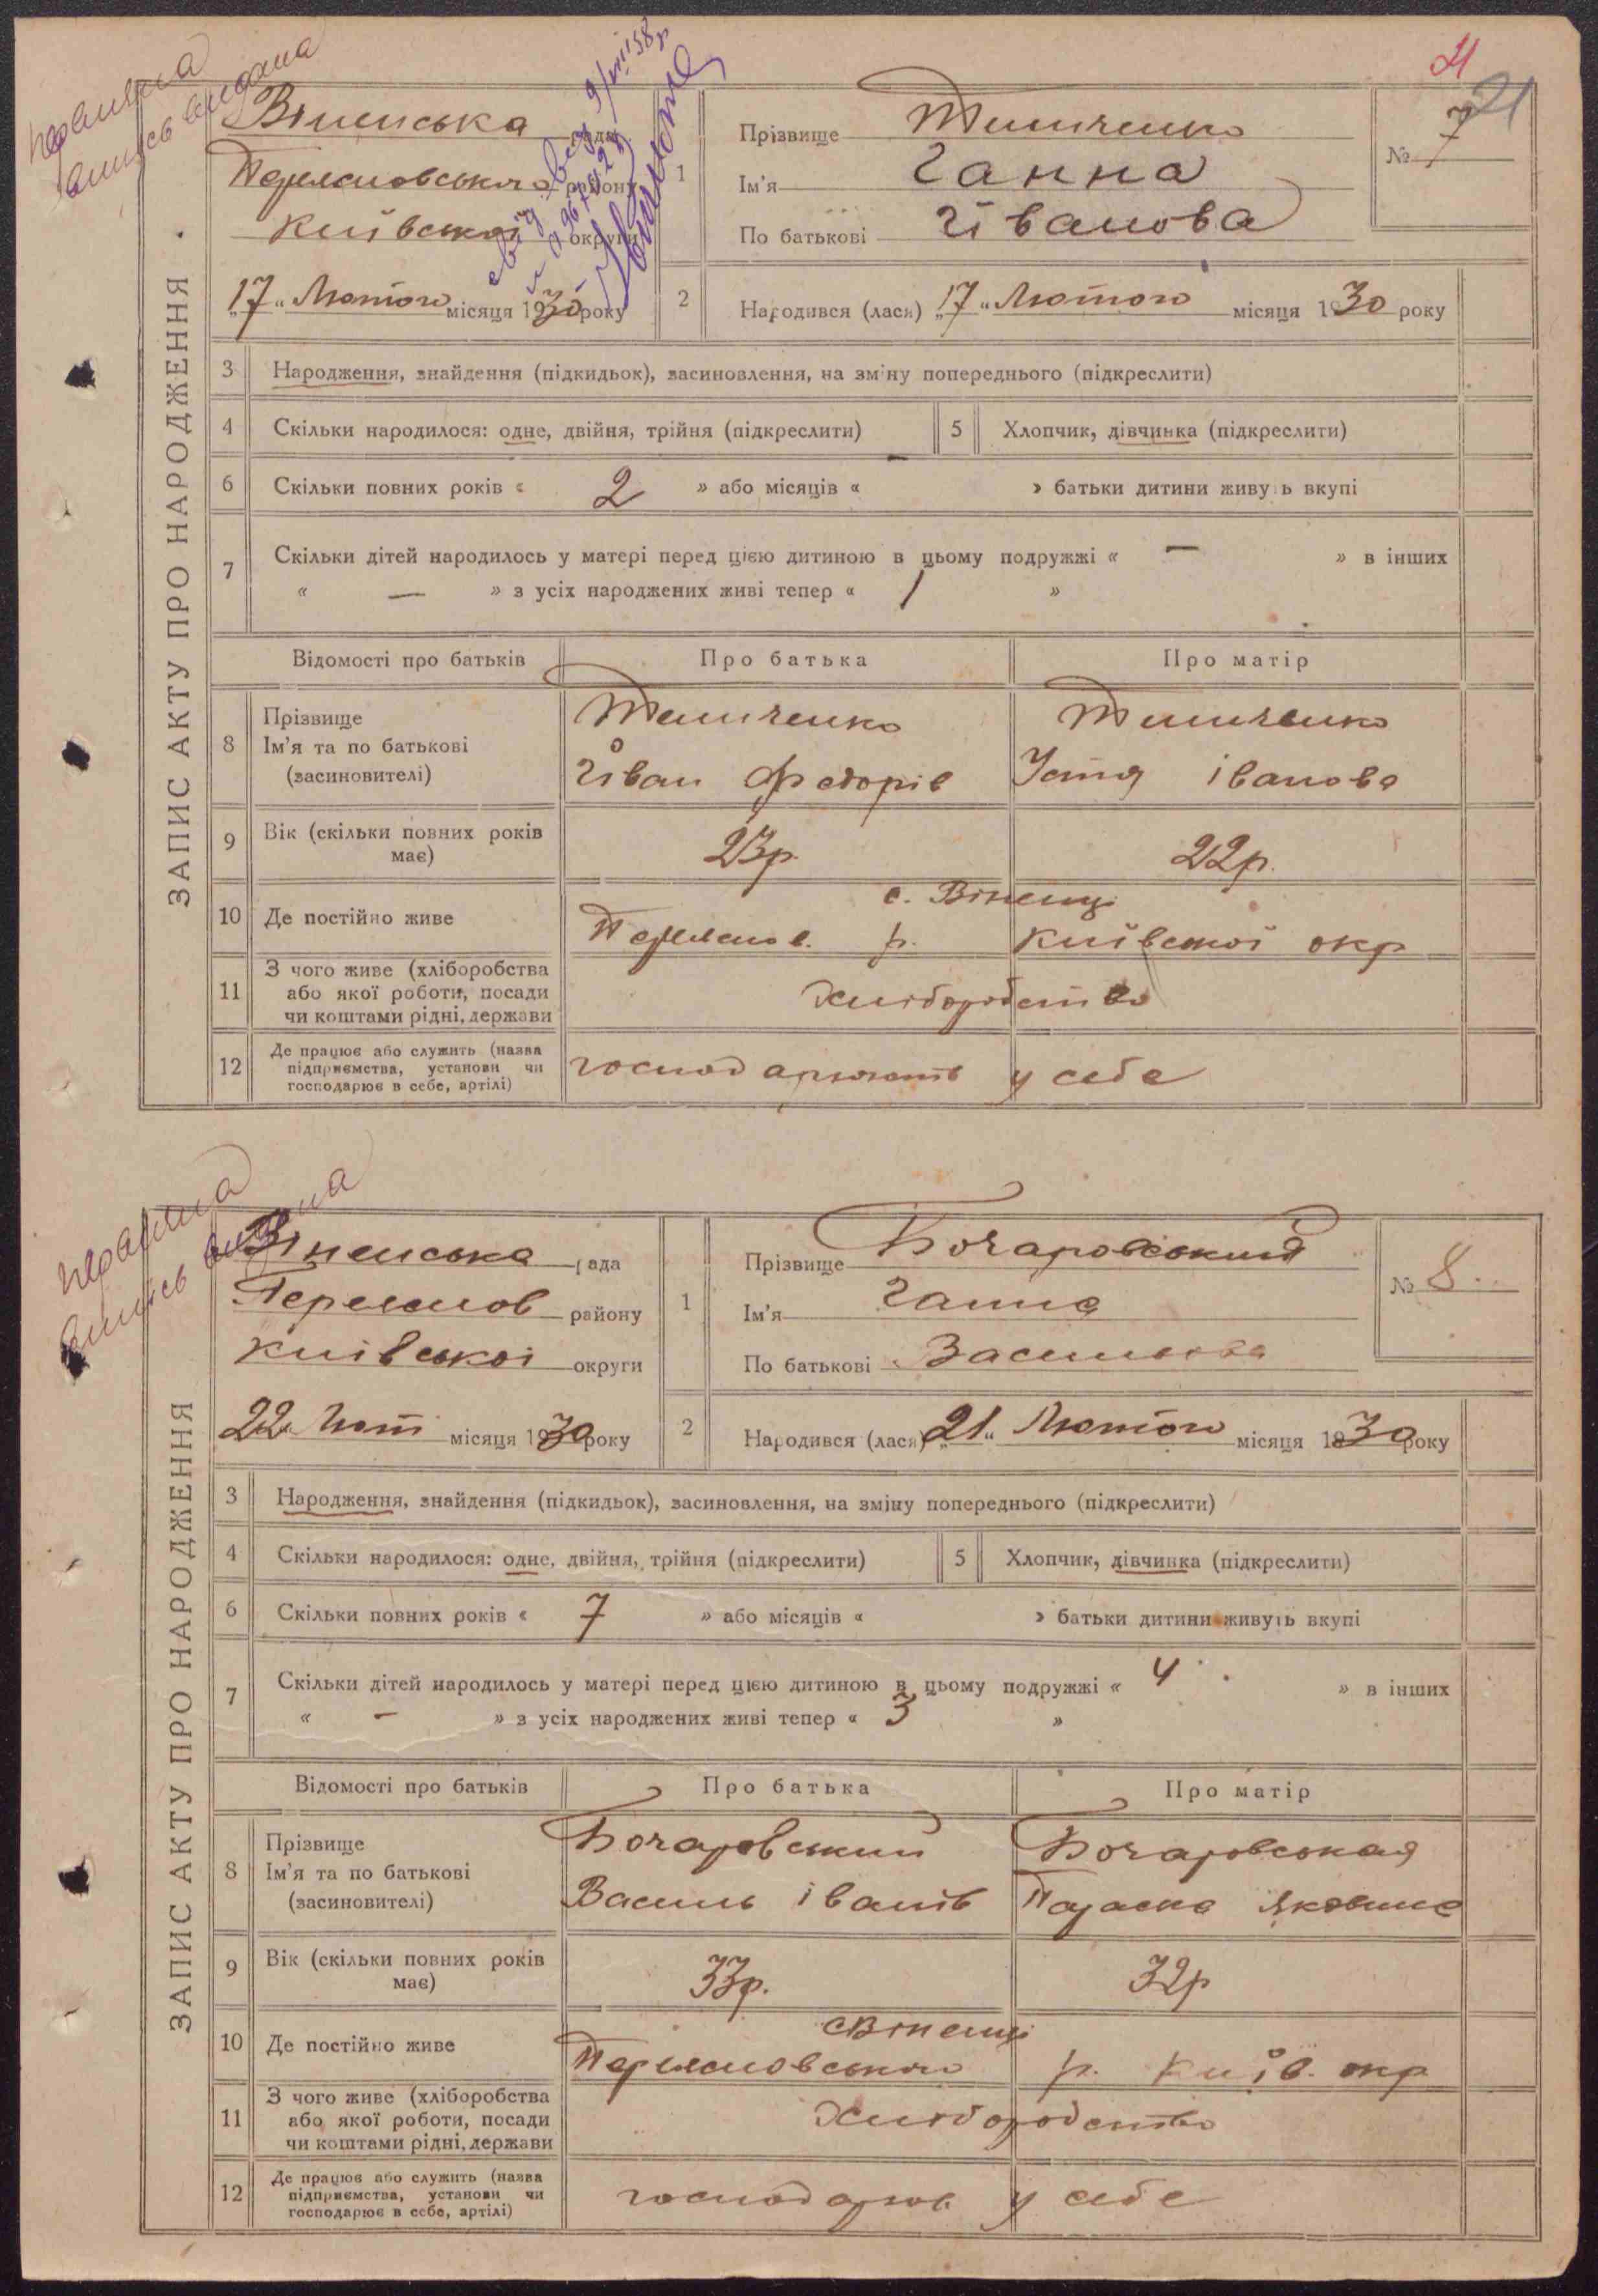 21
21
Віненська рада
Переясловського району
Київської округи
"17" Лютого місяця 1930 року
1
Прізвище Тимченко
Ім'я Ганна
По батькові Іванова
№ 7
2
Народився (лася) "17" Лютого місяця 1930 року
ЗАПИС АКТУ ПРО НАРОДЖЕННЯ
3 Народження, знайдення (підкидьок), засиновлення, на зміну попереднього (підкреслити)
4 Скільки народилося: одне, двійня, трійня (підкреслити)
5 Хлопчик, дівчинка (підкреслити)
6 Скільки повних років « 2 » або місяців « — » батьки дитини живуть вкупі
7 Скільки дітей народилось у матері перед цією дитиною в цьому подружжі « — » в інших
« — » з усіх народжених живі тепер « 1 »
Відомості про батьків Про батька Про матір
8 Прізвище
Ім'я та по батькові
(засиновителі)
Тимченко
Іван Федорів
Тимченко
Устя Іванова
9 Вік (скільки повних років
має)
23р.
22р.
10 Де постійно живе
с. Віненці
Переяслов. р. Київської окр
11 З чого живе (хліборобства
або якої роботи, посади
чи коштами рідні, держави
Хліборобство
12 Де працює або служить (назва
підприємства, установи чи
господарює в себе, артілі)
господарюють у себе
Віненська рада
Переяслов району
Київської округи
22 Лют місяця 1930 року
1
Прізвище Бочаровський
Ім'я Ганна
По батькові Васильова
№ 8
2
Народився (лася) "21" Лютого місяця 1930 року
ЗАПИС АКТУ ПРО НАРОДЖЕННЯ
3 Народження, знайдення (підкидьок), засиновлення, на зміну попереднього (підкреслити)
4 Скільки народилося: одне, двійня, трійня (підкреслити)
5 Хлопчик, дівчинка (підкреслити)
6 Скільки повних років « 7 » або місяців « » батьки дитини живуть вкупі
7 Скільки дітей народилось у матері перед цією дитиною в цьому подружжі « 4 » в інших
« — » з усіх народжених живі тепер « 3 »
Відомості про батьків Про батька Про матір
8 Прізвище
Ім'я та по батькові
(засиновителі)
Бочаровський
Василь Іванів
Бочаровская
Параска Яковина
9 Вік (скільки повних років
має)
33р.
32р
10 Де постійно живе
с Віненці
Переясловського р. Київ. окр
11 З чого живе (хліборобства
або якої роботи, посади
чи коштами рідні, держави
Хліборобство
12 Де працює або служить (назва
підприємства, установи чи
господарює в себе, артілі)
господарюв у себе